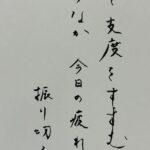 支度をすすむ
なか 今日の疲れ
振り切